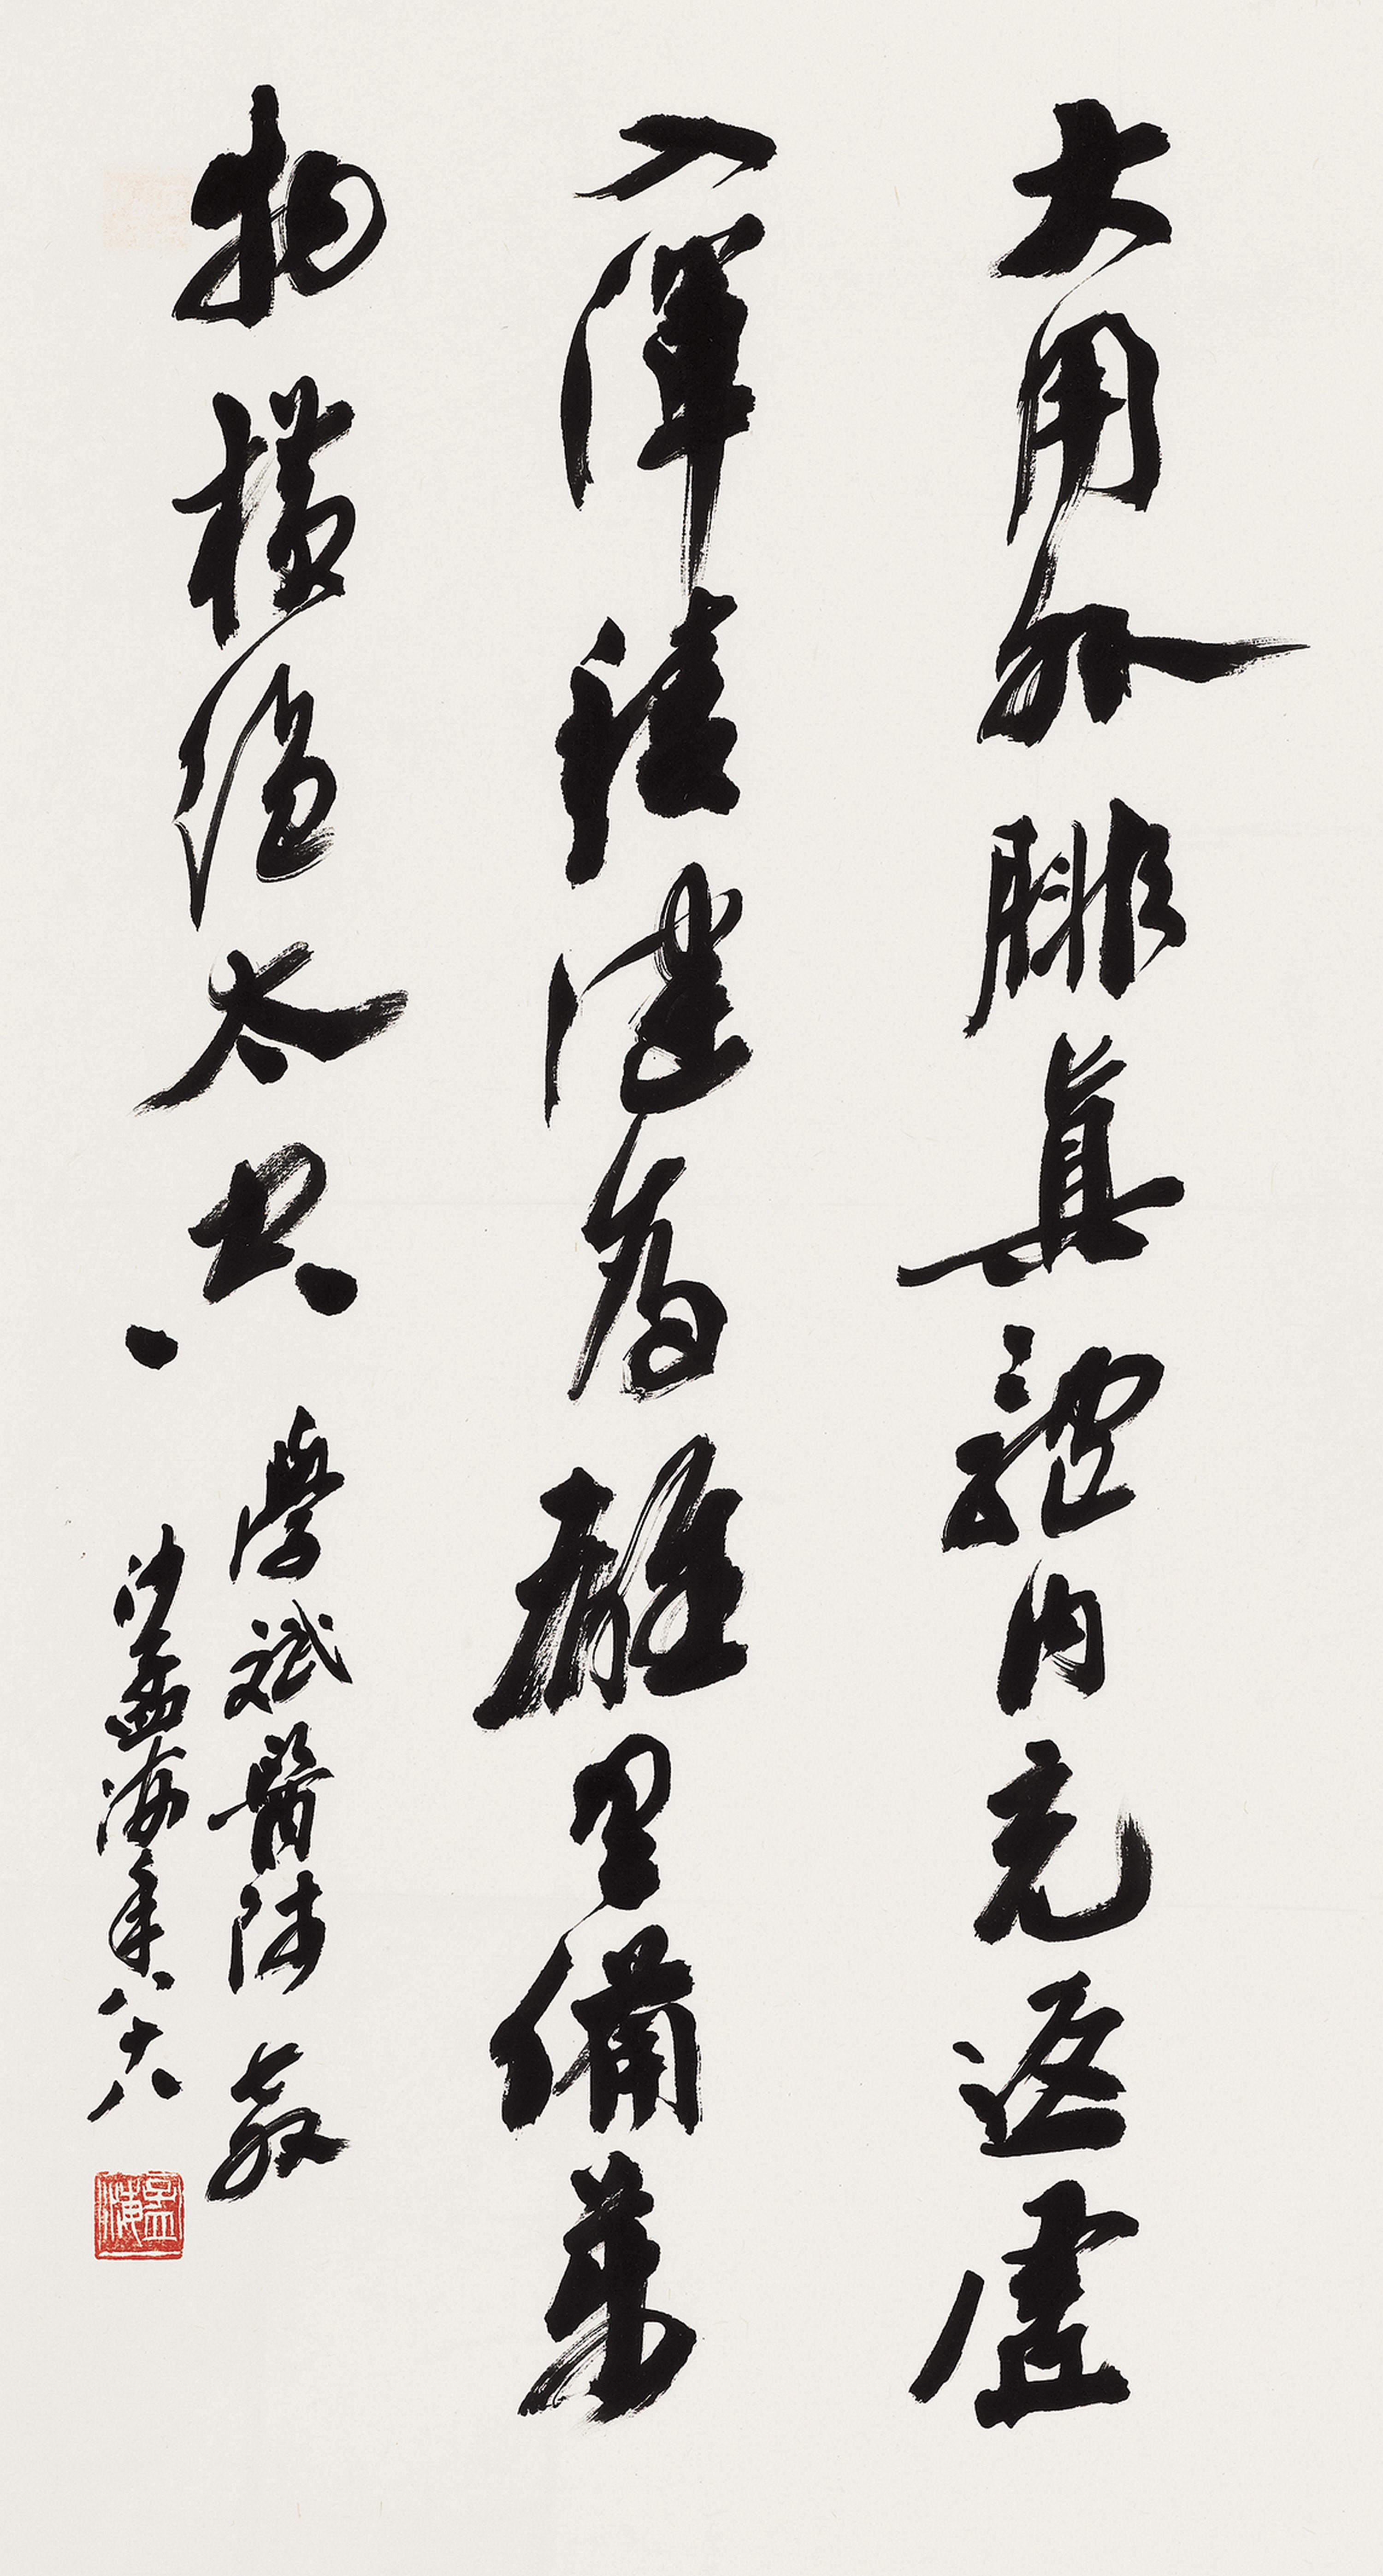 大用外腓真體內充返虛
入渾積健為雄具備萬
物橫絕太空
學斌醫師教
沙孟海年八十八
孟海